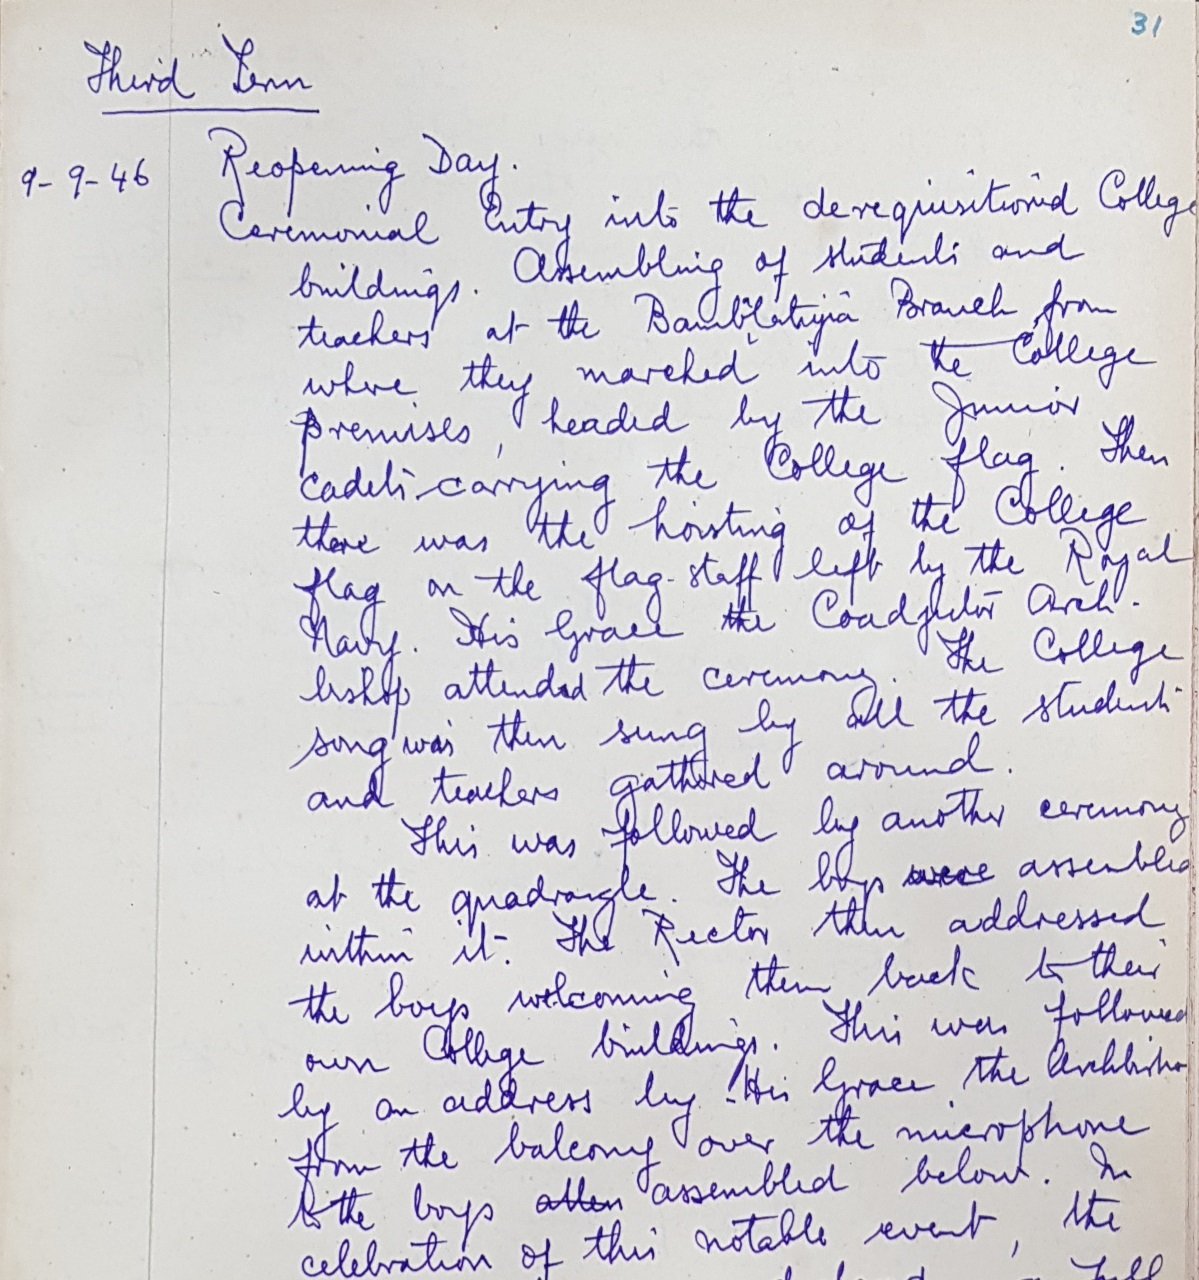 31
Third Term
9-9-46 Reopening Day.
Ceremonial Entry into the derequisitioned College
buildings. Assembling of students and
teachers at the Branch, from
where they marched into the College
premises, headed by the Junior
cadets carrying the College flag. Then
there was the hoisting of the College
flag on the flag-staff left by the Royal
Navy. His Grace the Coadjutor Arch-
bishop attended the ceremony. The College
song was then sung by all the students
and teachers gathered around.
This was followed by another ceremony
at the quadrangle. The boys were assembled
within it. The Rector then addressed
the boys welcoming them back to their
own College buildings. This was followed
by an address by His Grace the Archbishop
from the balcony over the microphone
to the boys assembled below. In
celebration of this notable event, the